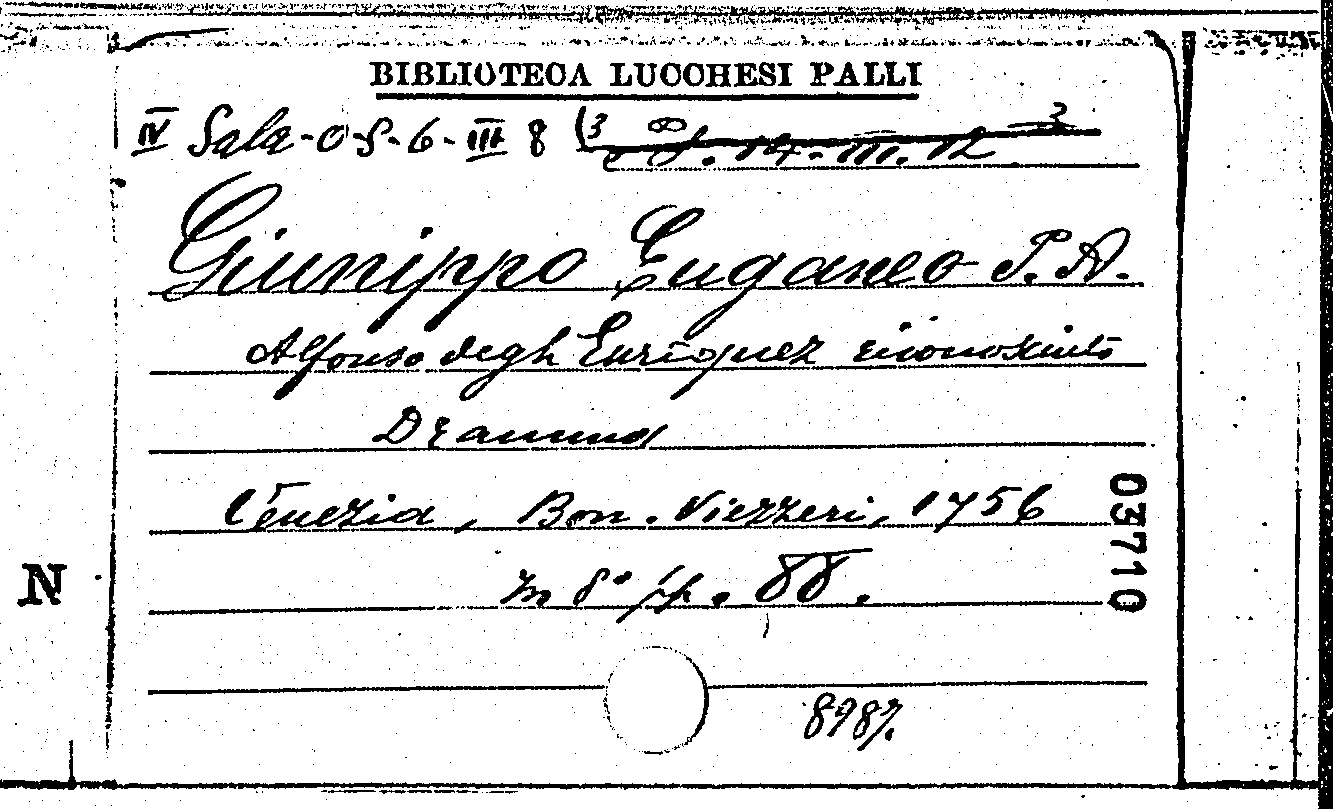 BIBLIOTECA LUCCHESI PALLI
IV Sala-O-5-6-III 8 (3
Giunippo Euganeo P. A.
Alfonso degli Enriquez riconosciuto
Dramma
Venezia, Bon. Viezzeri, 1756
03710
N
In 8° pp. 88.
8987.